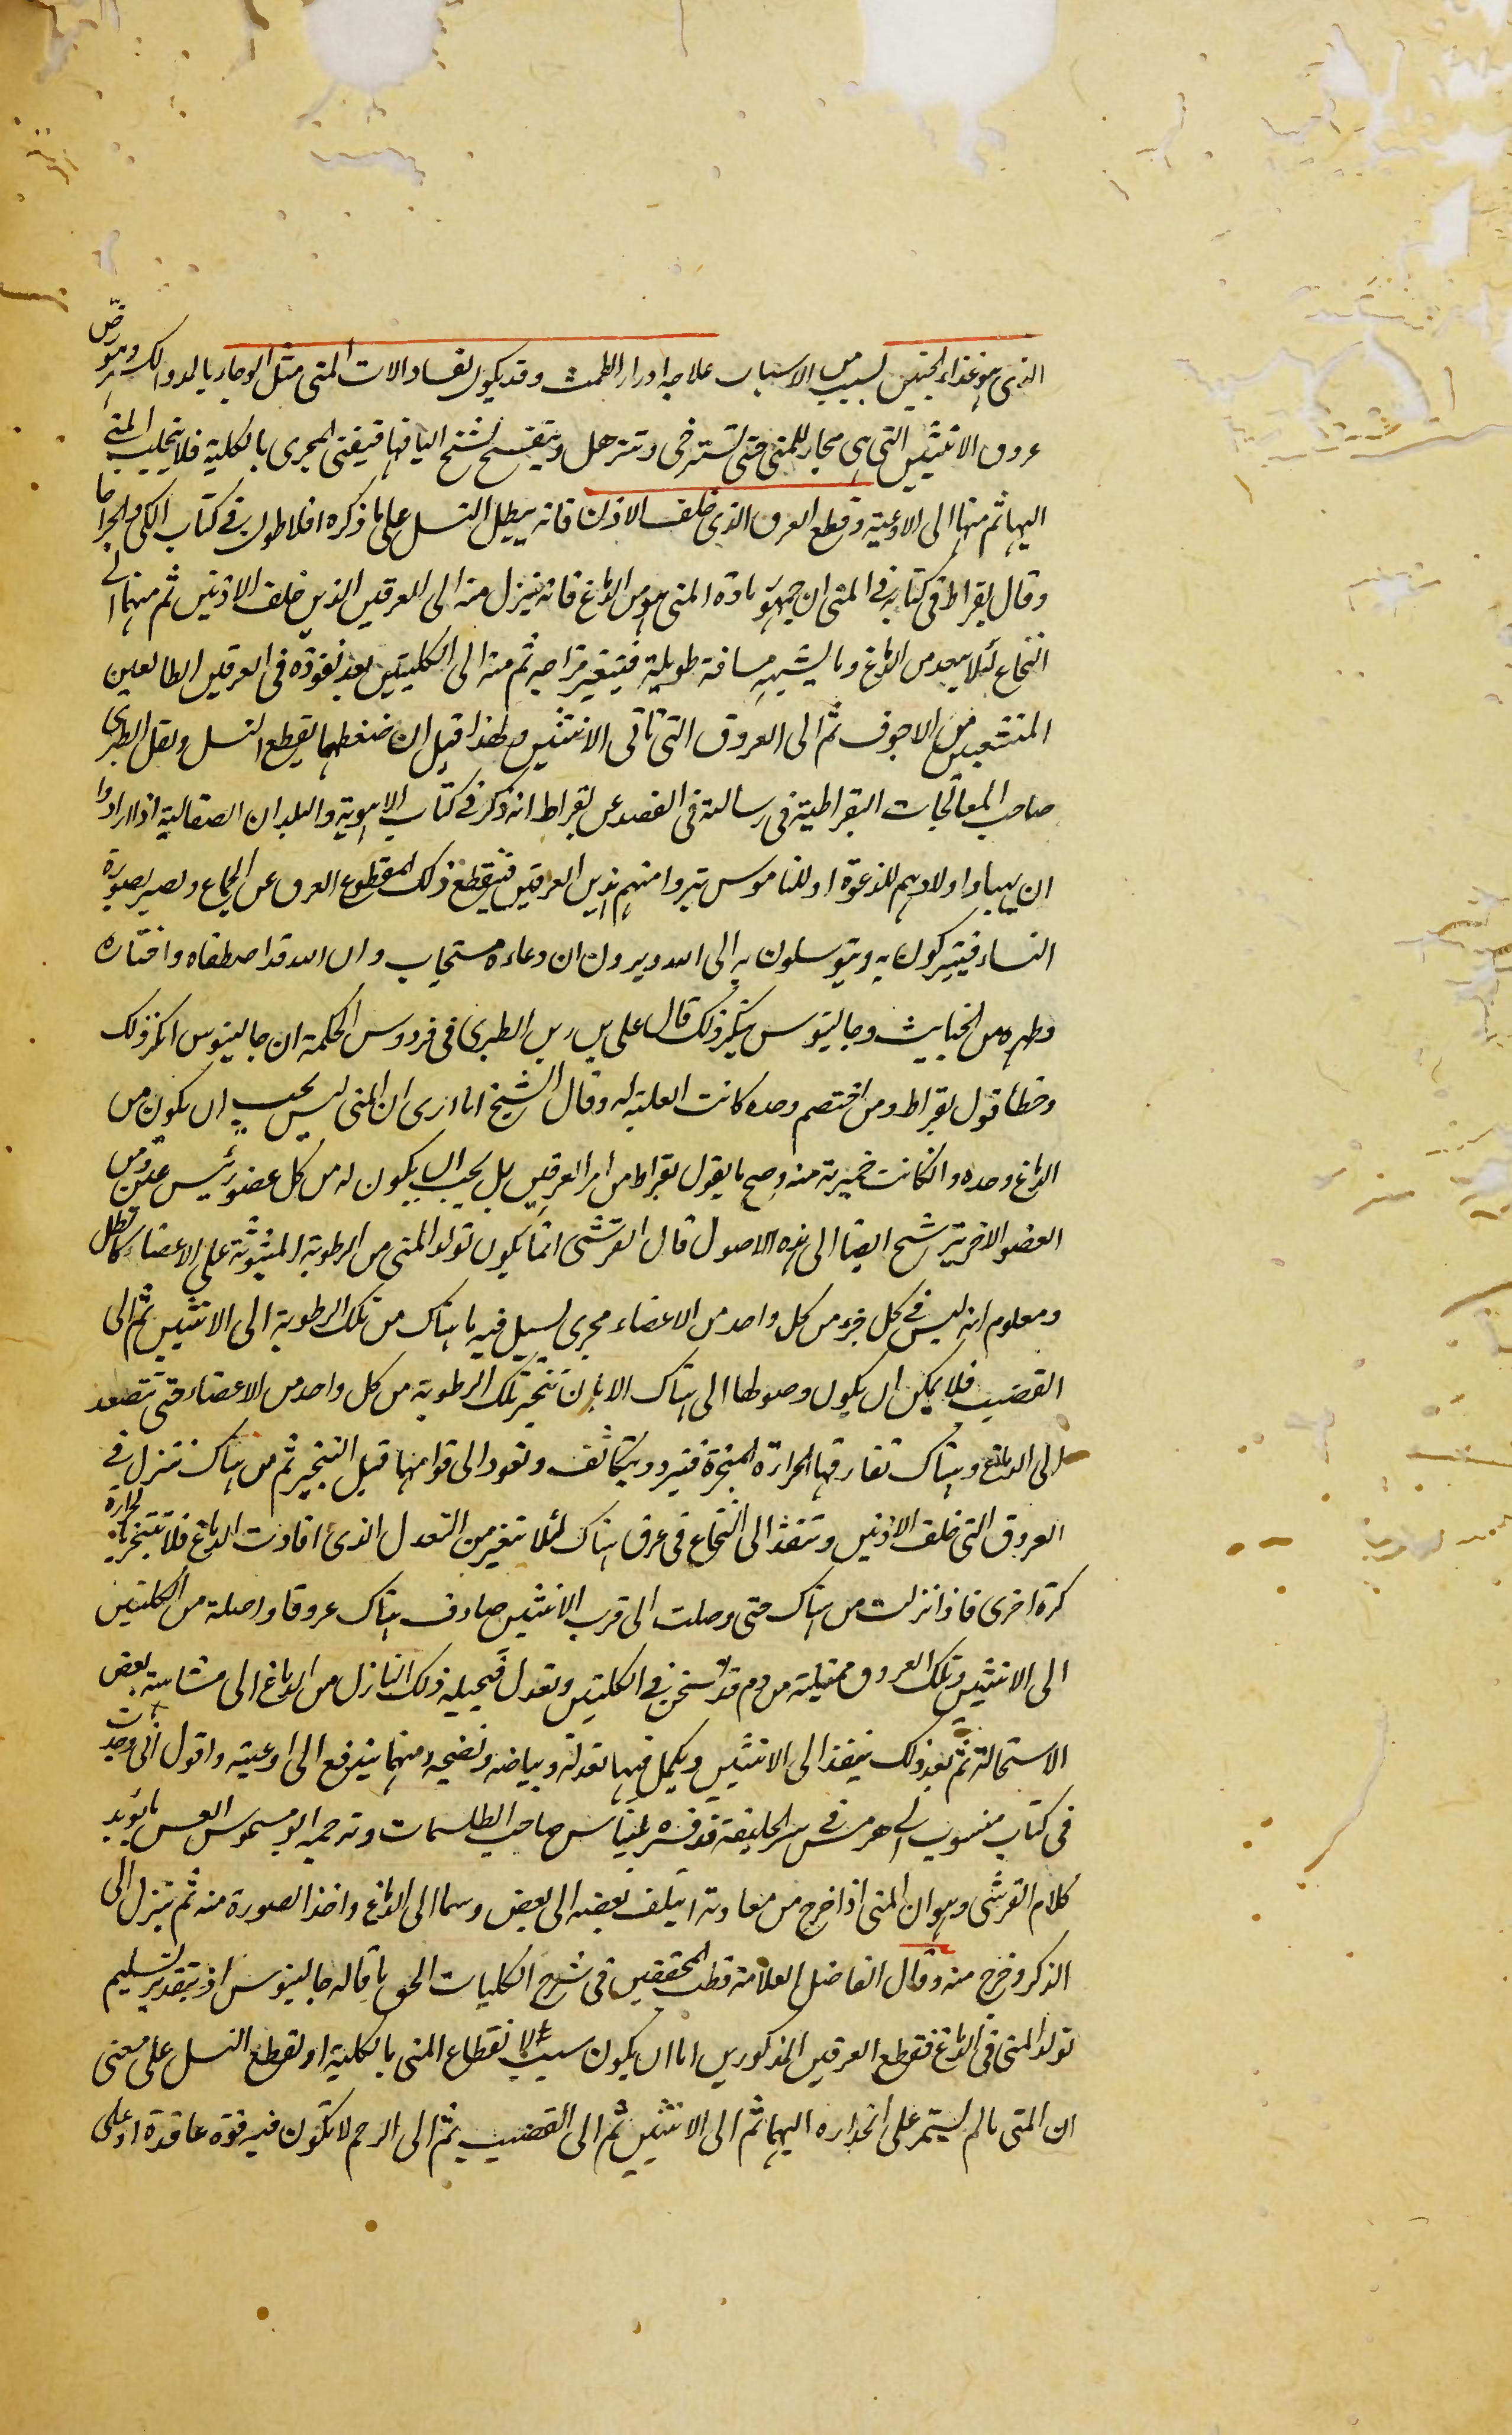 الذي هو غذاء الجنين لسبب من الاسباب علاجه ادرار الطمث وقد يكون لفساد الات المني مثل الوجاء بالدوالك وهو رض
عروق الانثيين التي هي مجار للمني حتى تسترخي وتترهل ويتفسخ لشنج اليافها فيفنى المجرى بالكلية فلا يتحلب المني
اليها ثم منها الى الاوعية وقطع العرق الذي خلف الاذن فانه يبطل النسل على ما ذكره افلاطون في كتاب الكي والجراحا
وقال بقراط في كتابه في المني ان جمهور مادة المني هو من الدماغ فانه ينزل منه الى العرقين الذين خلف الاذنين ثم منهما الى
النخاع لئلا يبعد من الدماغ وما يشبهه مسافة طويلة فيتغير مزاجه ثم منه الى الكليتين بعد نفوذه في العرقين الطالعين
المنشعبين من الاجوف ثم الى العروق التي تاتي الانثيين ولهذا قيل ان ضغطهما يقطع النسل ونقل الطبري
صاحب المعالجات البقراطية في رسالته في الفصد عن بقراط انه ذكر في كتاب الاهوية والبلدان الصقالبة اذا ارادوا
ان يهبوا اولادهم للدعوة او للناموس بتروا منهم هذين العرقين فينقطع ذلك المقطوع العرق عن الجماع ويصير بصورة
النساء فيتبركون به ويتوسلون به الى الله ويرون ان دعاءه مستجاب وان الله قد اصطفاه واختاره
وطهره من الخبايث وجالينوس ينكر ذلك قال علي بن ربن الطبري في فردوس الحكمة ان جالينوس انكر ذلك
وخطأ قول بقراط ومن اختصم وحده كانت الغلبة له وقال الشيخ انا ارى ان المني ليس يجب ان يكون من
الدماغ وحده وان كانت خميرته منه وصح ما يقول بقراط من امر العرقين بل يجب ان يكون له من كل عضو رئيس عين ومن
العضو الاخر يترشح ايضا الى هذه الاصول قال القرشي انما يكون تولد المني من الرطوبة المبثوثة على الاعضاء كالطل
ومعلوم انه ليس في كل جزء من كل واحد من الاعضاء مجرى يسيل فيه ما هناك من تلك الرطوبة الى الانثيين ثم الى
القضيب فلا يمكن ان يكون وصولها الى هناك الا بان تتبخر تلك الرطوبة من كل واحد من الاعضاء حتى تتصعد
الى الدماغ وهناك تفارقها الحرارة المبخرة فتبرد ويتكاثف وتعود الى قوامها قبل التبخير ثم من هناك تنزل في
العروق التي خلف الاذنين وتنفذ الى النخاع في عرق هناك لئلا تتغير من التعدل الذي افادته الدماغ فلا تتبخر بالحرارة
كرة اخرى فاذا نزلت من هناك حتى وصلت الى قرب الانثيين صادف هناك عروقا واصلة من الكليتين
الى الانثيين وتلك العروق ممتلية من دم قد تسخن في الكليتين وتعدل فيحيله ذلك النازل من الدماغ الى مشابهته بعض
الاستحالة ثم بعد ذلك ينفذ الى الانثيين ويكمل فيها تعدله وبياضه ونضجه ومنهما يندفع الى اوعيته واقول اني وجدت
في كتاب منسوب الى هرمس في سر الخليقة قد فسره بلنياس صاحب الطلسمات وترجمه ما يؤيد
كلام القرشي وهو ان المني اذا خرج من معادنه ايتلف بعضه الى بعض وسما الى الدماغ واخذ الصورة منه ثم ينزل الى
الذكر وخرج منه وقال الفاضل العلامة قطب المحققين في شرح الكليات الحق ما قاله جالينوس اذ بتقدير تسليم
تولد المني في الدماغ فقطع العرقين المذكورين اما ان يكون سببا لانقطاع المني بالكلية او لقطع النسل على معنى
ان المني ما لم يستمر على انحداره اليهما ثم الى الانثيين ثم الى القضيب ثم الى الرحم لا تكون فيه قوة عاقدة او على